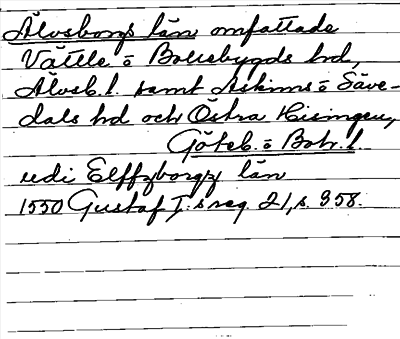 Älvsborgs län omfattade
Vättle- o Bollebygds hd,
Älvsb. l. samt Askims- o Säve-
dals hd och Östra Hisingen,
Göteb. o Boh. l.
udi Elffzborgz län
1550 Gustaf I:s reg. 21, s. 358.